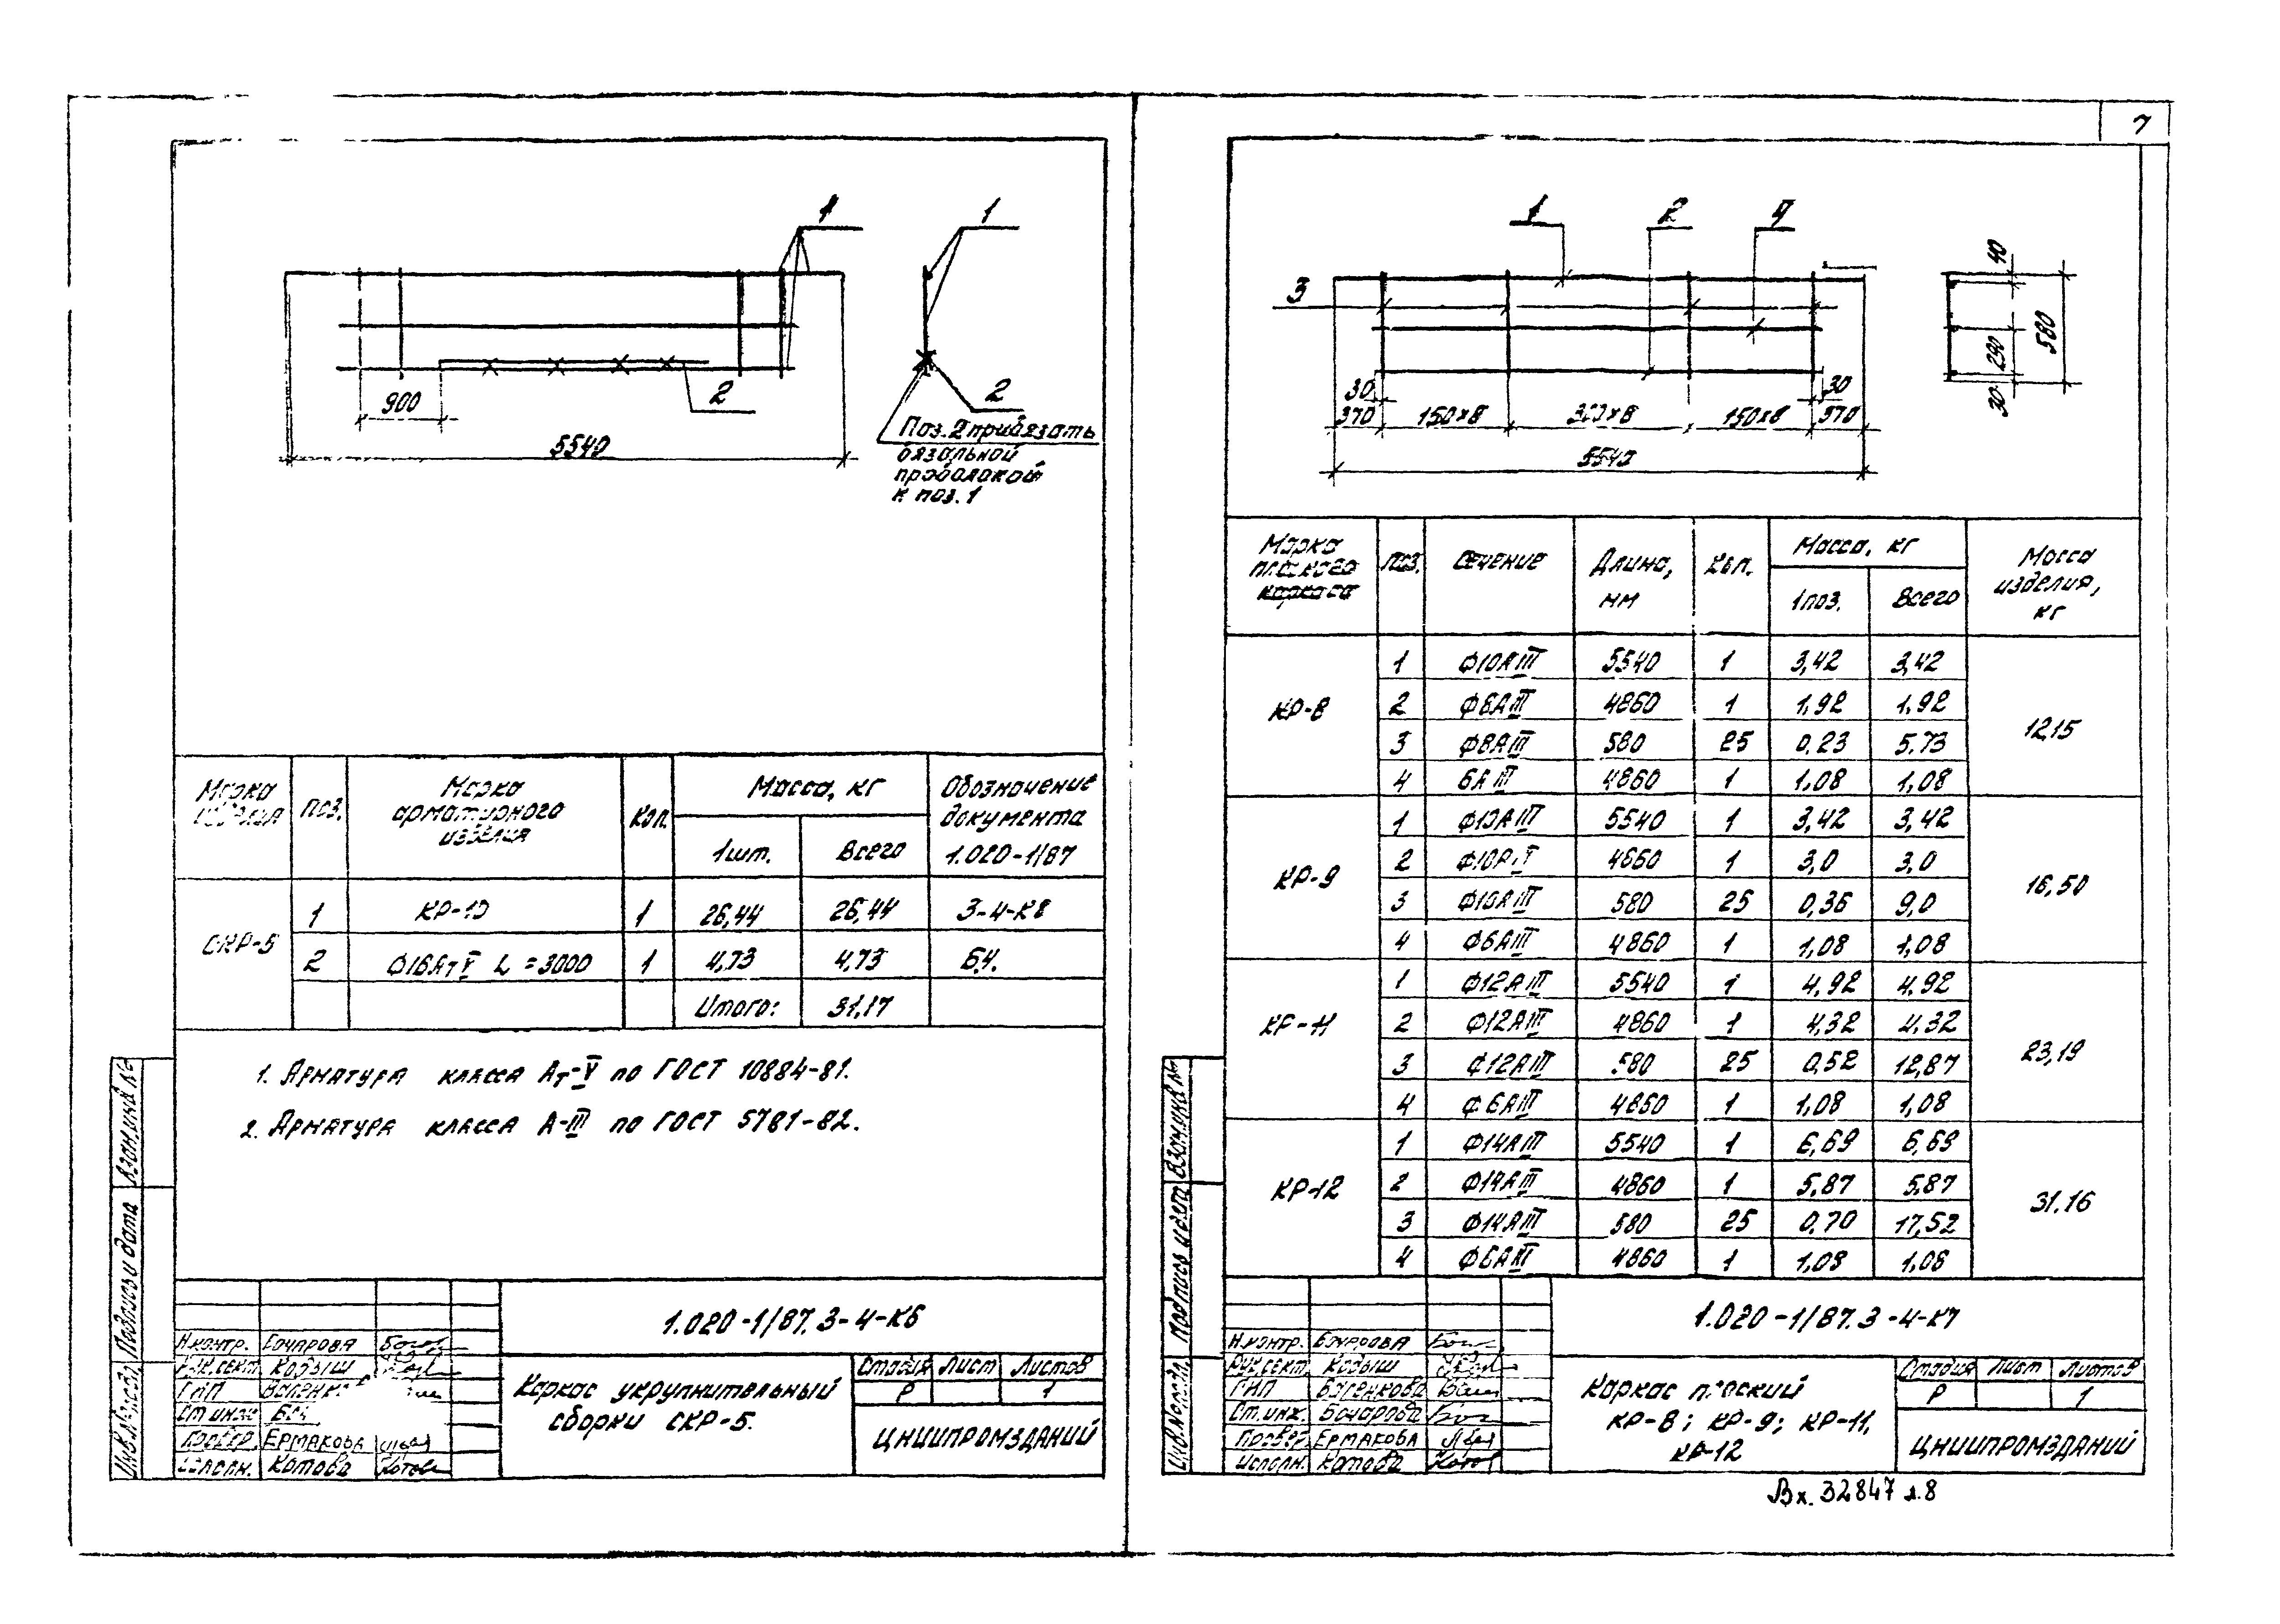 7
1
1
2
2
900
5540
Поз. 2 привязать
вязальной
проволокой
к поз. 1
Марка изделия | поз. | Марка арматурного изделия | Кол. | Масса, кг | Обозначение документа 1.020-1/87
1шт. | Всего
СКР-5 | 1 | КР-10 | 1 | 26,44 | 26,44 | 3-4-К8
2 | Ф16АтV L=3000 | 1 | 4,73 | 4,73 | Б.Ч.
Итого: | 31,17
1. Арматура класса Ат-V по ГОСТ 10884-81.
2. Арматура класса А-III по ГОСТ 5781-82.
Взам.инв №
Подпись и дата
Инв.№подл.
1.020-1/87.3-4-К6
Н.контр. Бочарова
Рук.сект. Кодыш
ГИП
Ст инж
Провер. Ермакова
Исполн. Котова
Каркас укрупнительный
сборки СКР-5.
Стадия Лист Листов
Р 1
ЦНИИПРОМЗДАНИЙ
1 2 4
3
40
580
290
30
30 30
370 150х8 300х8 150х8 370
5540
Марка плоского каркаса | поз. | Сечение | Длина, мм | Кол. | Масса, кг | Масса изделия, кг
1поз. | Всего
КР-8 | 1 | Ф10АIII | 5540 | 1 | 3,42 | 3,42 | 12,15
2 | Ф8АIII | 4860 | 1 | 1,92 | 1,92
3 | Ф8АIII | 580 | 25 | 0,23 | 5,73
4 | 6АIII | 4860 | 1 | 1,08 | 1,08
КР-9 | 1 | Ф10АIII | 5540 | 1 | 3,42 | 3,42 | 16,50
2 | 4860 | 1 | 3,0 | 3,0
3 | Ф10АIII | 580 | 25 | 0,36 | 9,0
4 | Ф6АIII | 4860 | 1 | 1,08 | 1,08
КР-11 | 1 | Ф12АIII | 5540 | 1 | 4,92 | 4,92 | 23,19
2 | Ф12АIII | 4860 | 1 | 4,32 | 4,32
3 | Ф12АIII | 580 | 25 | 0,52 | 12,87
4 | Ф6АIII | 4860 | 1 | 1,08 | 1,08
КР-12 | 1 | Ф14АIII | 5540 | 1 | 6,69 | 6,69 | 31,16
2 | Ф14АIII | 4860 | 1 | 5,87 | 5,87
3 | Ф14АIII | 580 | 25 | 0,70 | 17,52
4 | Ф6АIII | 4860 | 1 | 1,08 | 1,08
Взам.инв №
Подпись и дата
Инв.№подл.
1.020-1/87.3-4-К7
Н.контр. Бочарова
Рук.сект. Кодыш
ГИП
Ст.инж. Бочарова
Провер. Ермакова
Исполн. Котова
Каркас плоский
КР-8; КР-9; КР-11,
КР-12
Стадия Лист Листов
Р 1
ЦНИИПРОМЗДАНИЙ
Вх. 32847 л.8